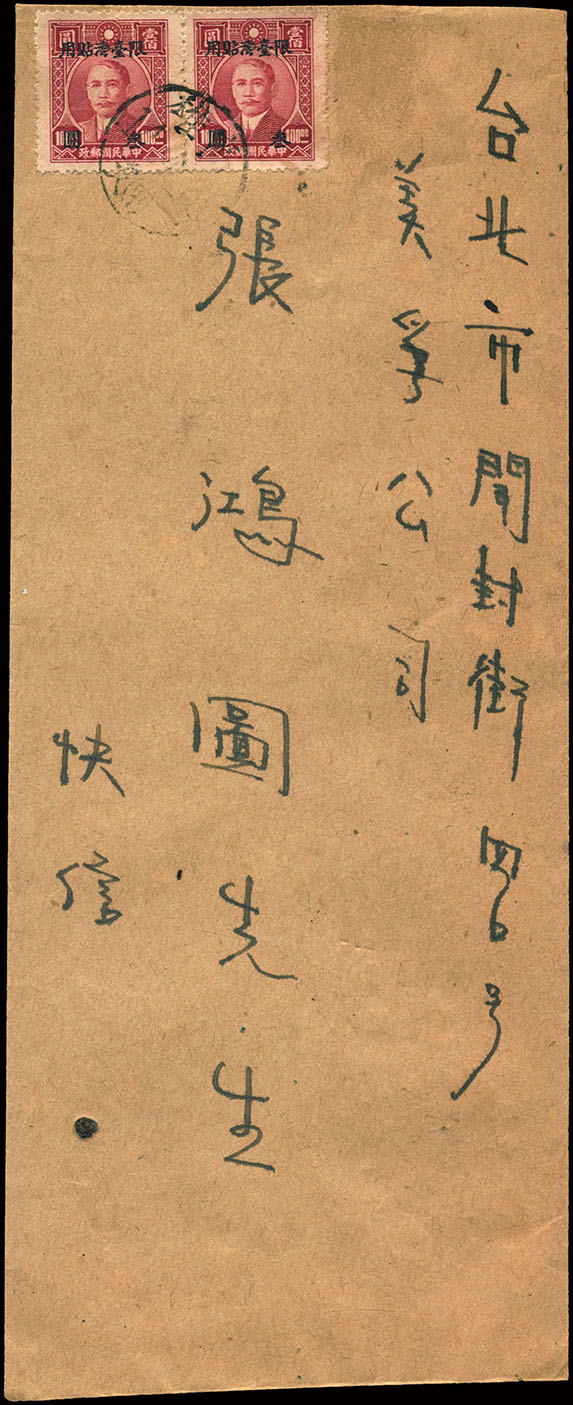 台北市開封街四6号
美孚公司
張鴻圖先生
快信
壹佰圓
限臺灣貼用
叁圓
100 00
中華民國郵政
壹佰圓
限臺灣貼用
叁圓
100 00
中華民國郵政